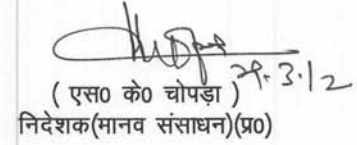 29.3.12
( एस0 के0 चोपड़ा )
निदेशक(मानव संसाधन)(प्र0)